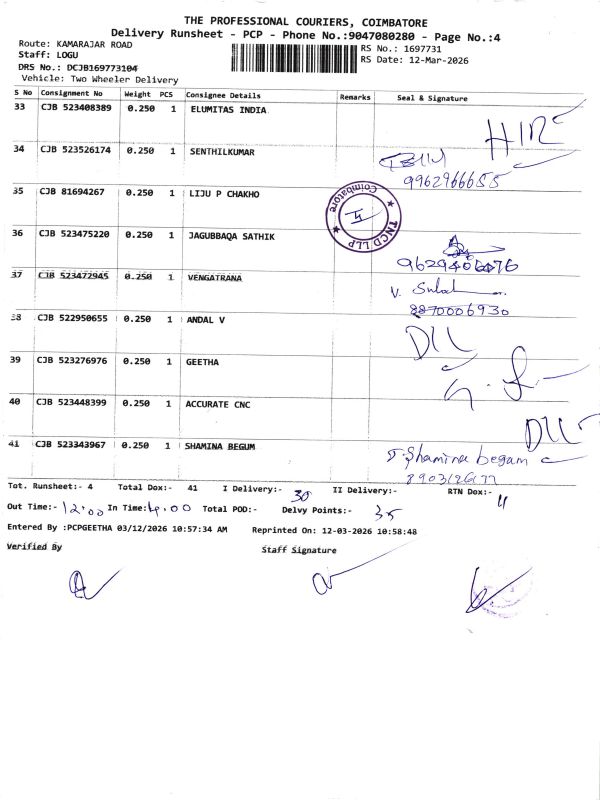 THE PROFESSIONAL COURIERS, COIMBATORE
Delivery Runsheet - PCP - Phone No.:9047080280 - Page No.:4
Route: KAMARAJAR ROAD RS No.: 1697731
Staff: LOGU RS Date: 12-Mar-2026
DRS No.: DCJB169773104
Vehicle: Two Wheeler Delivery
S No Consignment No Weight PCS Consignee Details Remarks Seal & Signature
33 CJB 523408389 0.250 1 ELUMITAS INDIA
34 CJB 523526174 0.250 1 SENTHILKUMAR
9962966655
35 CJB 81694267 0.250 1 LIJU P CHAKHO
TNCD LLP Coimbatore
36 CJB 523475220 0.250 1 JAGUBBAQA SATHIK
37 CJB 523472945 0.250 1 VENGATRANA
V.
8870006930
38 CJB 522950655 0.250 1 ANDAL V
39 CJB 523276976 0.250 1 GEETHA
40 CJB 523448399 0.250 1 ACCURATE CNC
41 CJB 523343967 0.250 1 SHAMINA BEGUM
Shamina begam
Tot. Runsheet:- 4 Total Dox:- 41 I Delivery:- 30 II Delivery:- RTN Dox:- 4
Out Time:- 12.00 In Time:4.00 Total POD:- Delvy Points:- 35
Entered By :PCPGEETHA 03/12/2026 10:57:34 AM Reprinted On: 12-03-2026 10:58:48
Verified By Staff Signature